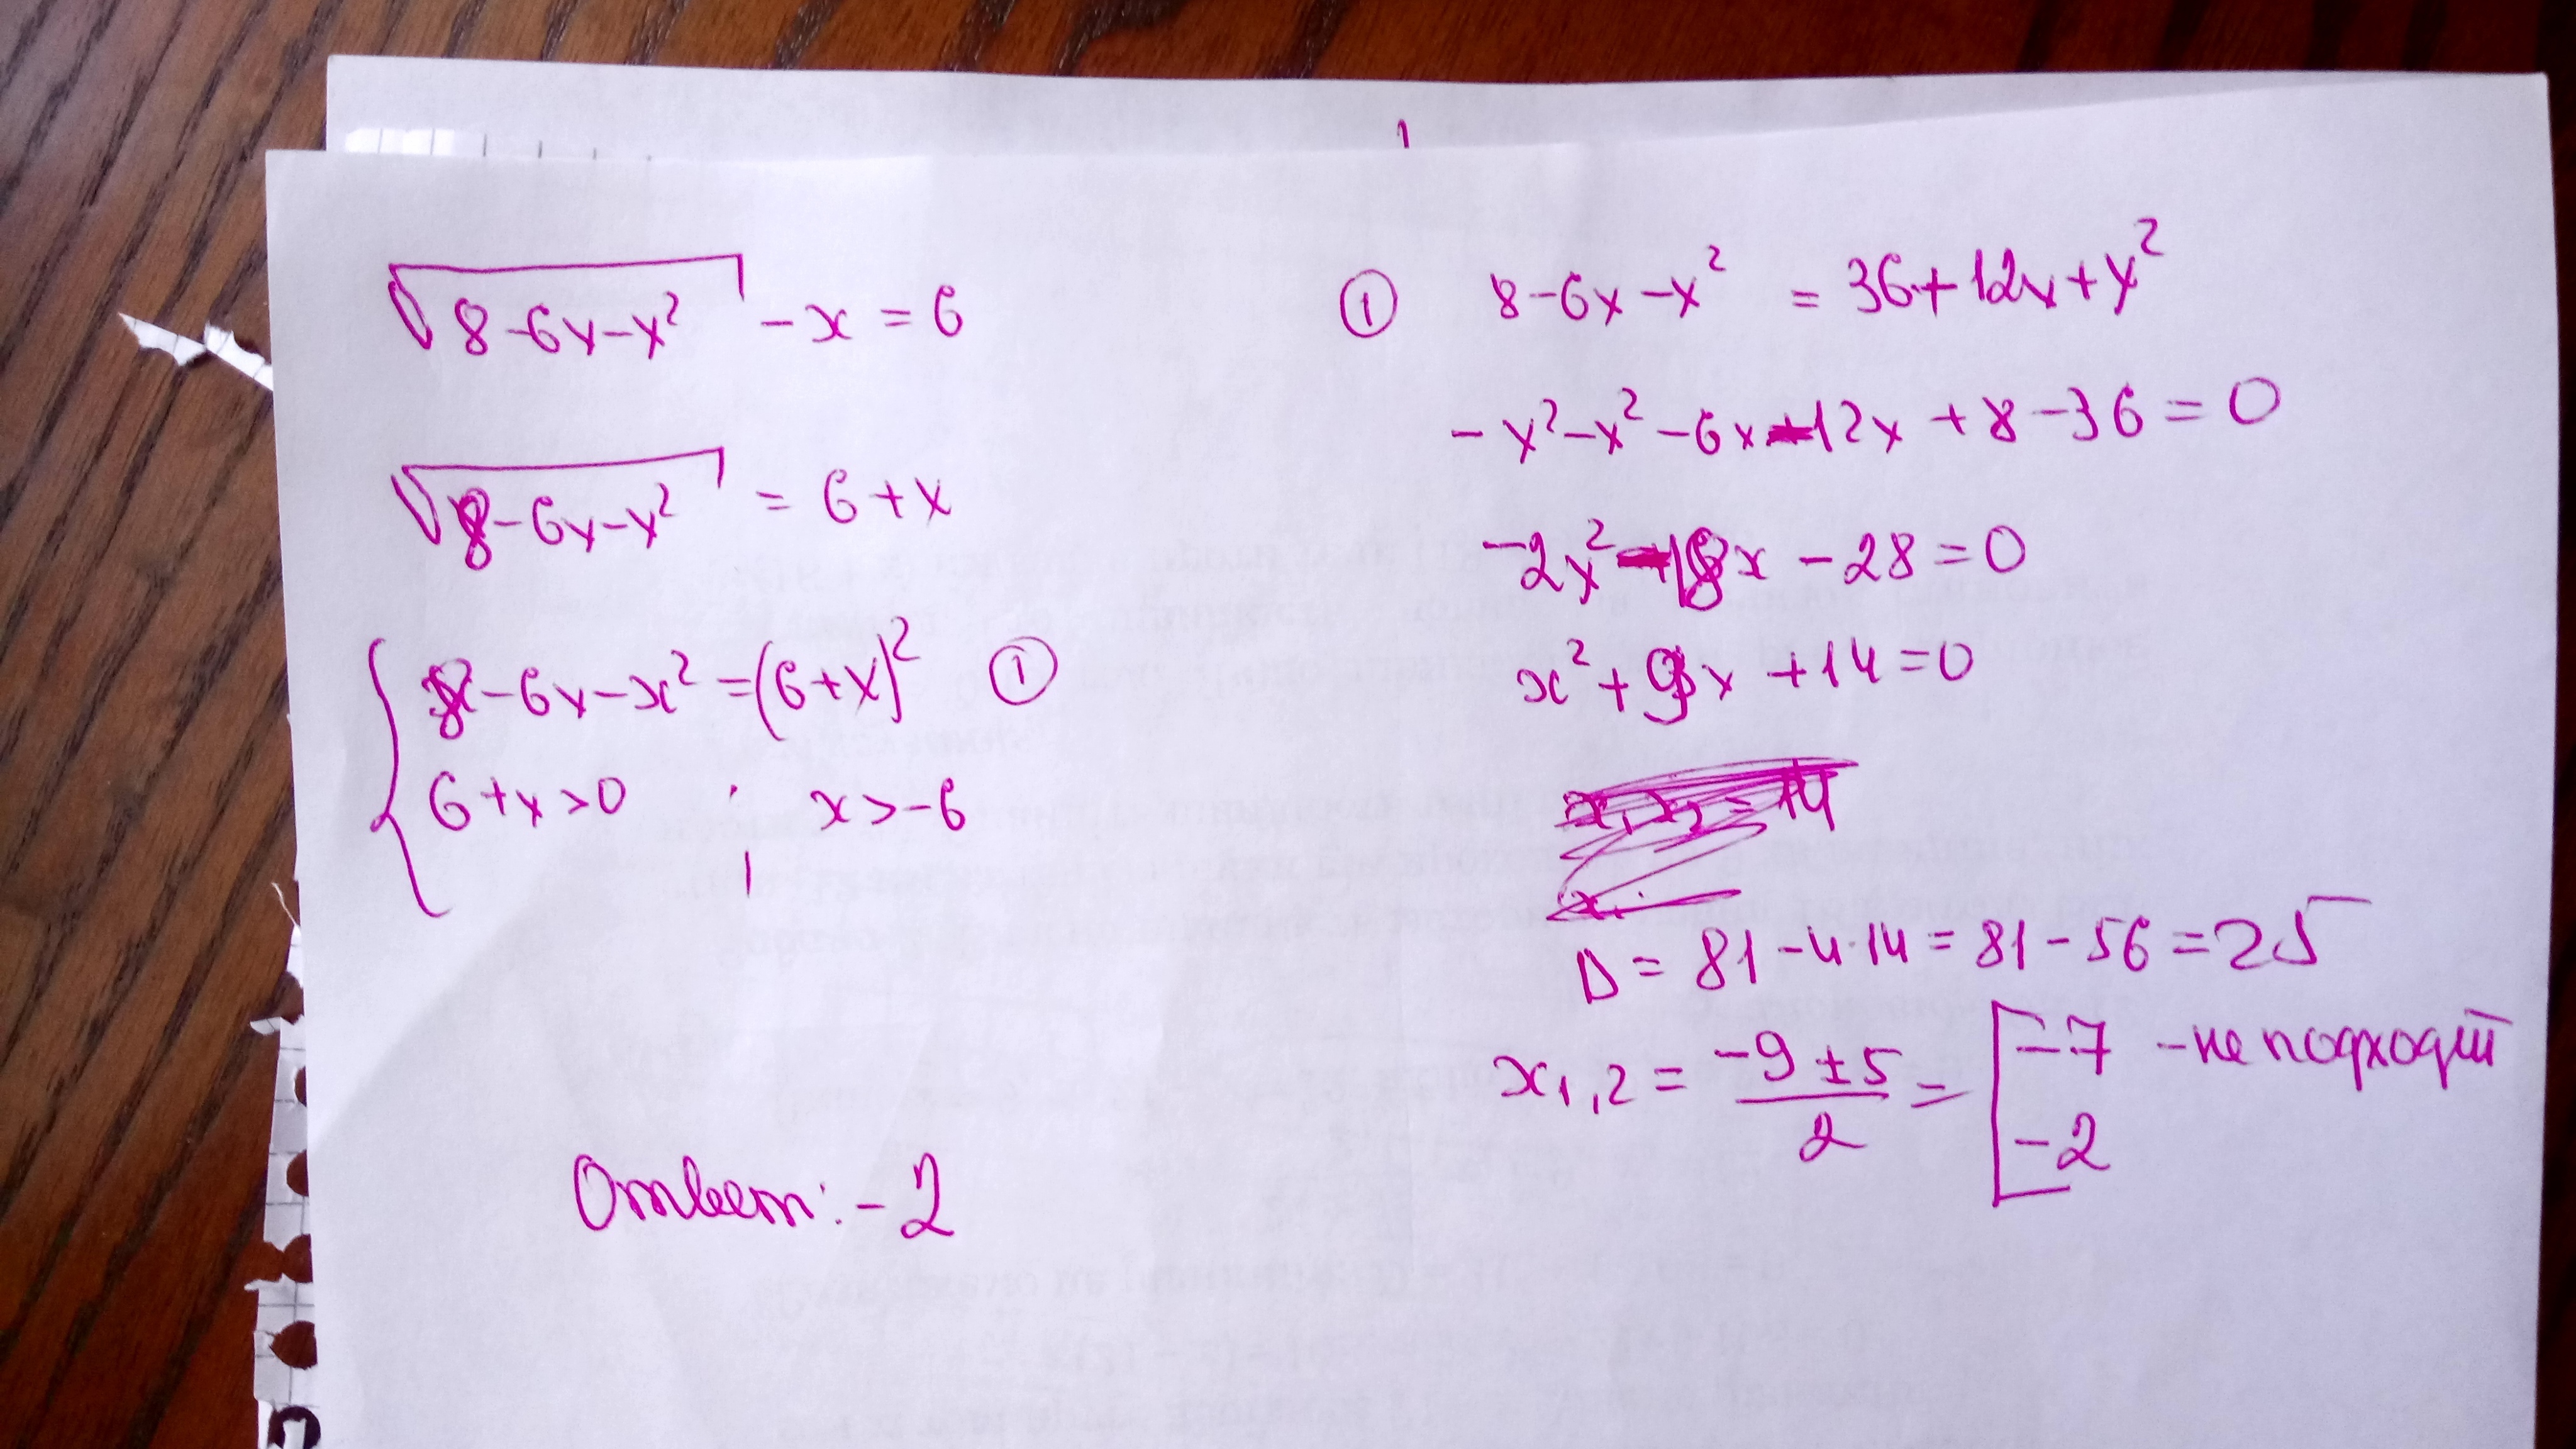 √(8-6x-x²) -x = 6
√(8-6x-x²) = 6+x
8-6x-x² = (6+x)² ①
6+x>0 ; x>-6
① 8-6x-x² = 36+12x+x²
-x²-x²-6x-12x+8-36=0
-2x²-18x-28=0
x²+9x+14=0
D = 81-4·14 = 81-56 = 25
x1,2 = (-9±5)/2 = [-7 - не подходит
-2
Ответ: -2